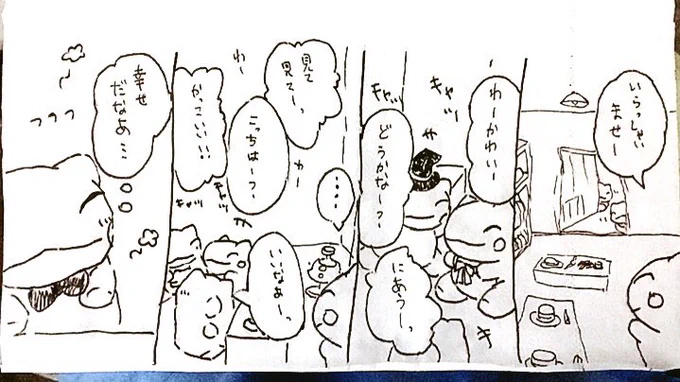 いらっしゃい
ませー
わーかわいー
キャッ
キャッ
どうかなー?
にあうーっ
き
見て
見てーっ
わー
こっちはー?
わー
かっこいい!!
キャッ
キャッ
・・・・
いいなぁーっ
幸せ
だなあ…
フフフ